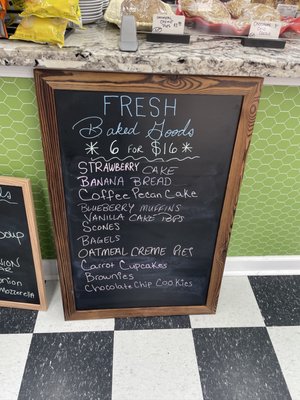 FRESH
Baked Goods
* 6 FOR $16 *
STRAWBERRY CAKE
BANANA BREAD
Coffee Pecan Cake
BLUEBERRY MUFFINS
VANILLA CAKE POPS
SCONES
BAGELS
OATMEAL CREME PIET
Carrot Cupcakes
BROWNIES
Chocolate Chip Cookies
Soup